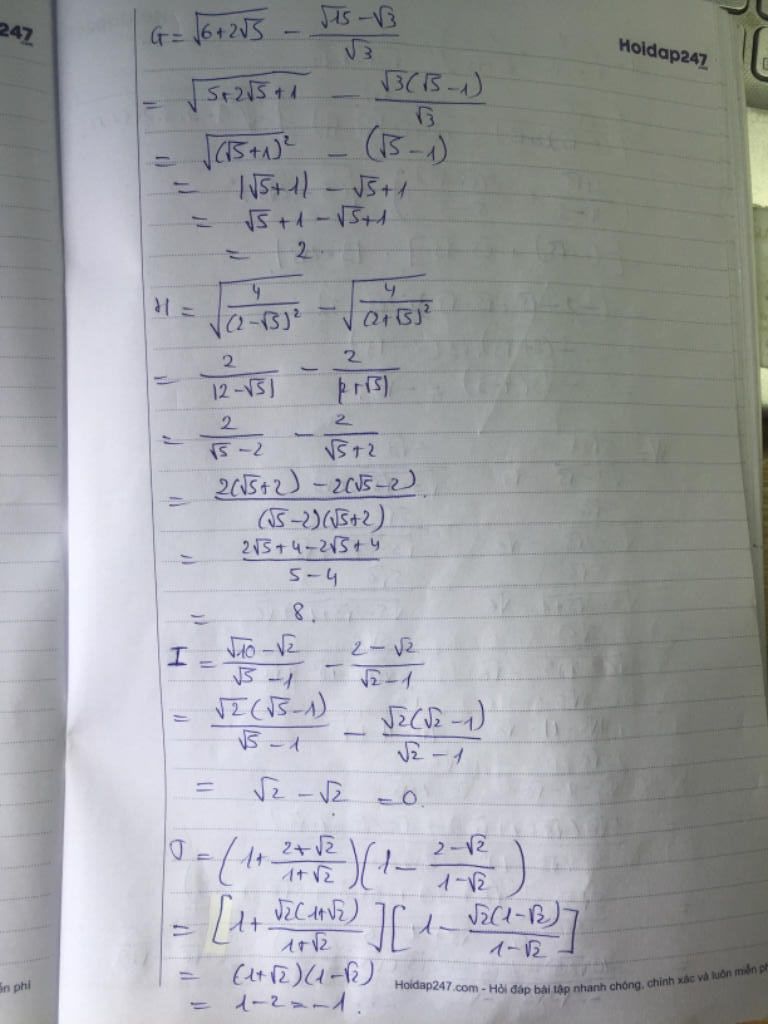 247
Hoidap247
G = √(6+2√5) − (√15 − √3)/√3
= √(5+2√5+1) − √3(√5−1)/√3
= √((√5+1)²) − (√5−1)
= |√5+1| − √5+1
= √5+1−√5+1
= 2.
H = √(4/(2−√5)²) − √(4/(2+√5)²)
= 2/|2−√5| − 2/|2+√5|
= 2/(√5−2) − 2/(√5+2)
= (2(√5+2) − 2(√5−2))/((√5−2)(√5+2))
= (2√5+4−2√5+4)/(5−4)
= 8.
I = (√10−√2)/(√5−1) − (2−√2)/(√2−1)
= √2(√5−1)/(√5−1) − √2(√2−1)/(√2−1)
= √2 − √2 = 0.
J = (1+(2+√2)/(1+√2))(1−(2−√2)/(1−√2))
= [1+√2(1+√2)/(1+√2)][1−√2(1−√2)/(1−√2)]
= (1+√2)(1−√2)
= 1−2=−1.
ễn phí
Hoidap247.com - Hỏi đáp bài tập nhanh chóng, chính xác và luôn miễn ph